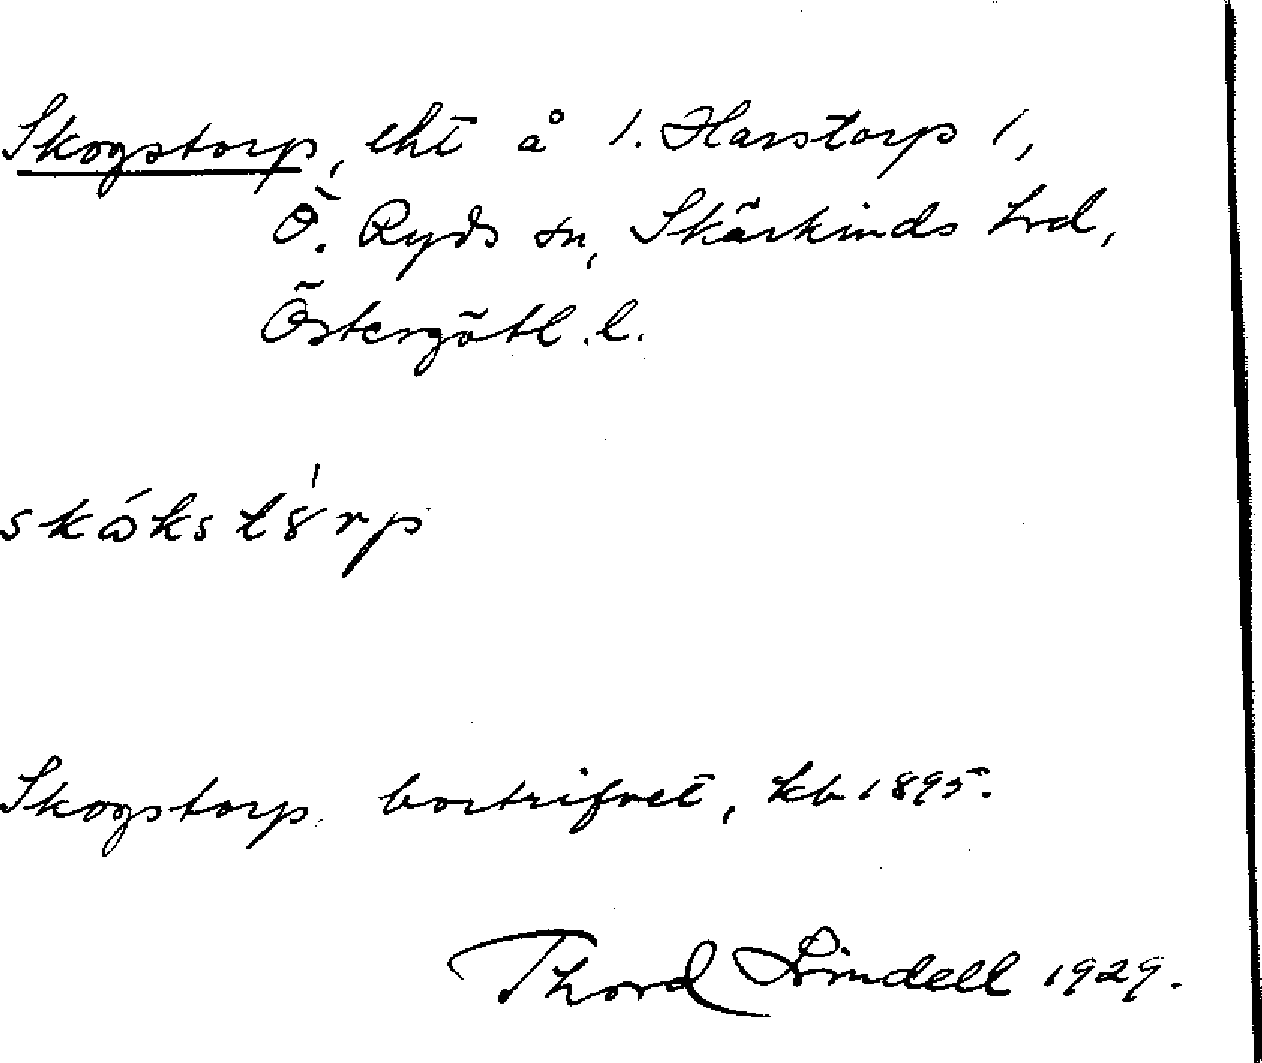 Skogstorp, lht å 1. Harstorp 1,
Ö. Ryds sn, Skärkinds hrd,
Östergötl. l.
Skogstorp. bortrifvet, kb 1895.
Thord Lindell 1929.